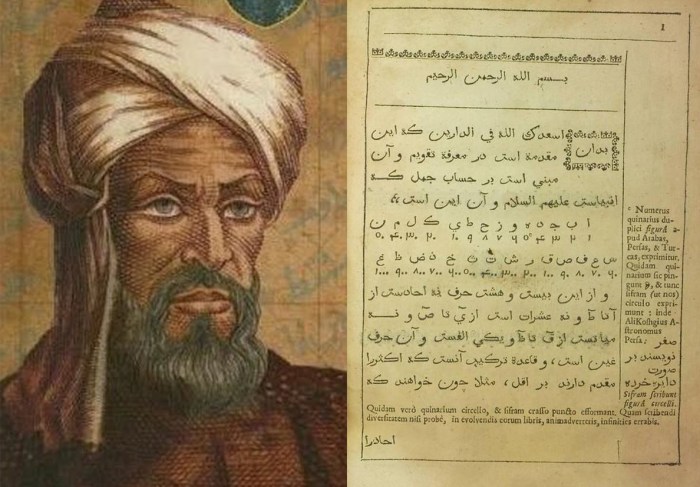 1
بسم الله الرحمن الرحيم
بدان
اسعدك الله في الدارين كه اين
مقدمة است در معرفة تقويم و آن
مبني است بر حساب جمل كه
عليهم السلام و آن اين است
ا ب ج د ه و ز ح ط ي ك ل م ن
س ع ف ص ق ر ش ت ث خ ذ ض ظ غ
و از اين بيست و هشت حرف
عشرات است از ي تا ص و نه
غين است و قاعدة تركيب آنست كه اكثررا
مقدم دارند بر اقل مثلا چون خواهند كه
Numerus
quinarius du-
plici figurâ a-
pud Arabas,
Persas, & Tur-
cas, exprimitur.
Quidam qui-
narium sic pin-
gunt & nunc
sifram (ut nos)
circulo expri-
munt: inde
Ali Koshgius A-
stronomus
Persa:
صفر
نويسند بر
صورت
دايره خرده
Sifram scribunt
figurâ circelli.
Quidam verò quinarium circello, & sifram crasso puncto efformant. Quam scribendi
diversitatem nisi probè, in evolvendis eorum libris, animadverteris, infinities errabis.
احادرا